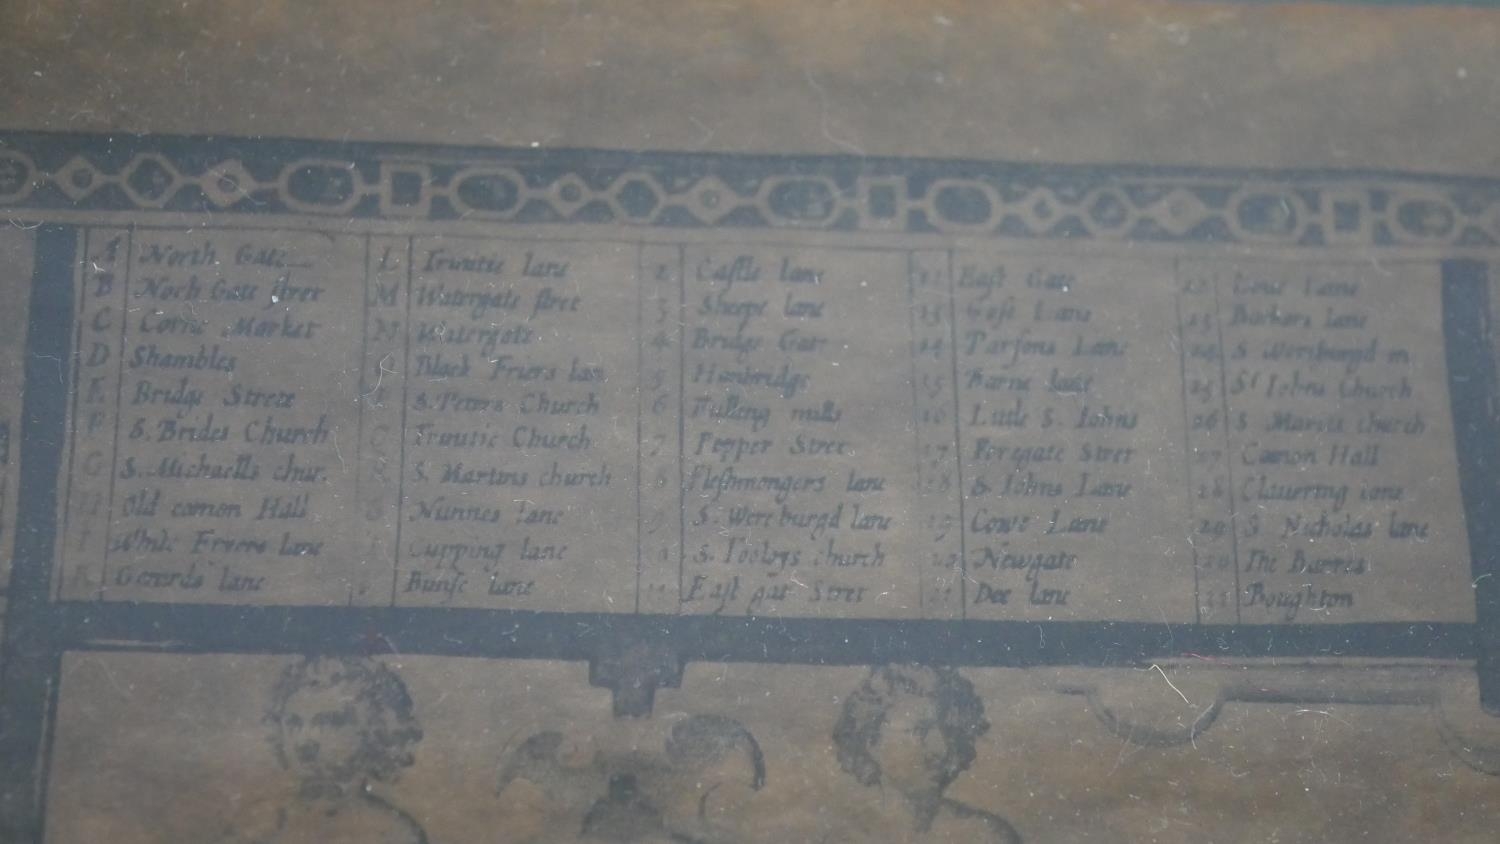 A North Gate
B North Gate stret
C Corne Market
D Shambles
E Bridge Strete
F S. Brides Church
G S. Michaells chur.
H Old comon Hall
I White Fryers lane
K Gerards lane
L Trinitie lane
M Watergate stret
N Watergate
Black Friers lan
S. Peters Church
Trinitie Church
R S. Martins church
S Nunnes lane
Cupping lane
Bunse lane
2 Castle lane
3 Shepe lane
4 Bridge Gate
5 Hanbridge
6 Fulling mills
7 Pepper Stret
8 Fleshmongers lane
9 S. Wereburgd lane
S. Tooleys church
11 East gat Stret
East Gate
13 Lane
14 Parsons Lane
15 Barne lane
16 Little S. Iohns
17 Foregate Stret
18 S. Iohns Lane
19 Cowe Lane
20 Newgate
21 Dee lane
22 Lane
23 Barkers lane
24 S Werburgd m
25 St Iohns Church
26 S Maries church
27 Comon Hall
28 Clauering lane
29 S Nicholas lane
The Barres
Boughton